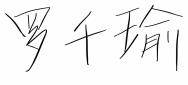 罗千瑜